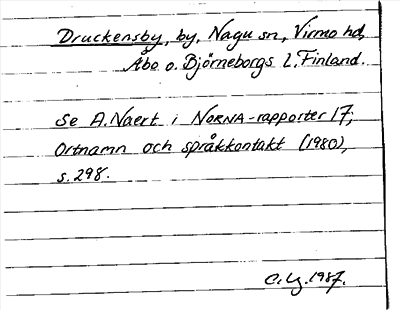 Druckensby, by, Nagu sn, Virmo hd,
Åbo o. Björneborgs l, Finland.
Se A. Naert i NORNA-rapporter 17;
Ortnamn och språkkontakt (1980),
s. 298.
1987.